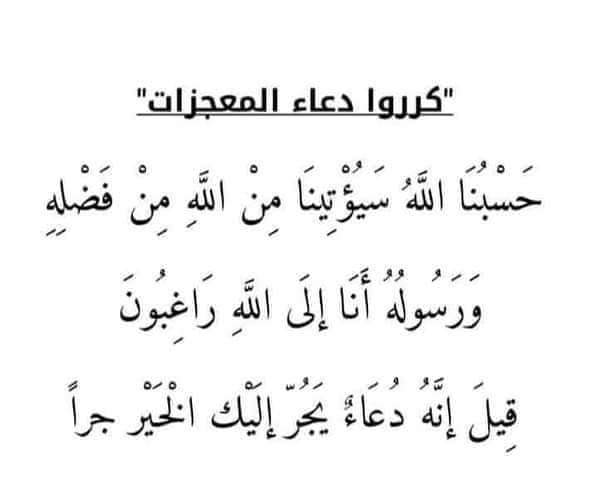 "كرروا دعاء المعجزات"
حَسْبُنَا اللَّهُ سَيُؤْتِينَا مِنْ اللَّهِ مِنْ فَضْلِهِ
وَرَسُولُهُ أَنَا إِلَى اللَّهِ رَاغِبُونَ
قِيلَ إِنَّهُ دُعَاءٌ يَجُرّ إِلَيْك الْخَيْر جراً